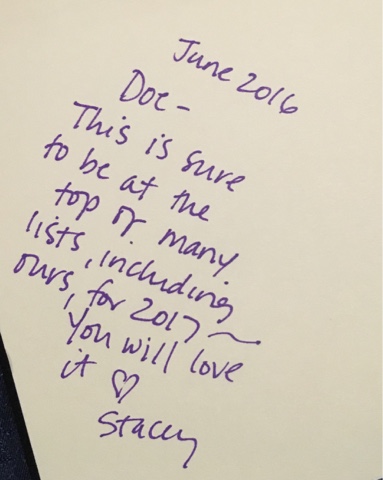 June 2016
Doc -
This is sure
to be at the
top of many
lists, including
ours, for 2017 ~
You will love
it ♡
Stacey